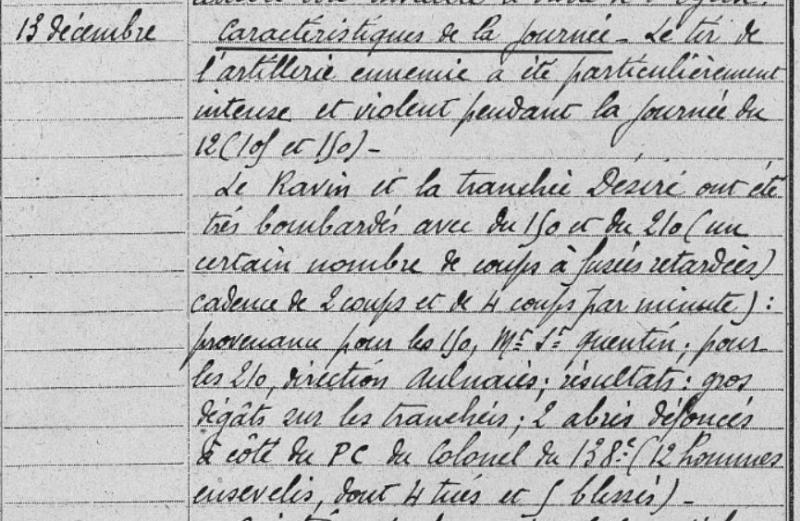 13 décembre
Caractéristiques de la journée - Le tir de
l'artillerie ennemie a été particulièrement
intense et violent pendant la journée du
12 (105 et 150) -
Le Ravin et la tranchée Désiré ont été
trés bombardés avec du 150 et du 210 (un
certain nombre de coups à fusées retardées)
cadence de 2 coups et de 4 coups par minute) :
provenance pour les 150, Mt St Quentin ; pour
les 210, direction Aulnaies ; résultats : gros
dégâts sur les tranchées ; 2 abris défoncés
à côté du PC du Colonel du 138e (12 hommes
ensevelis, dont 4 tués et 5 blessés) -